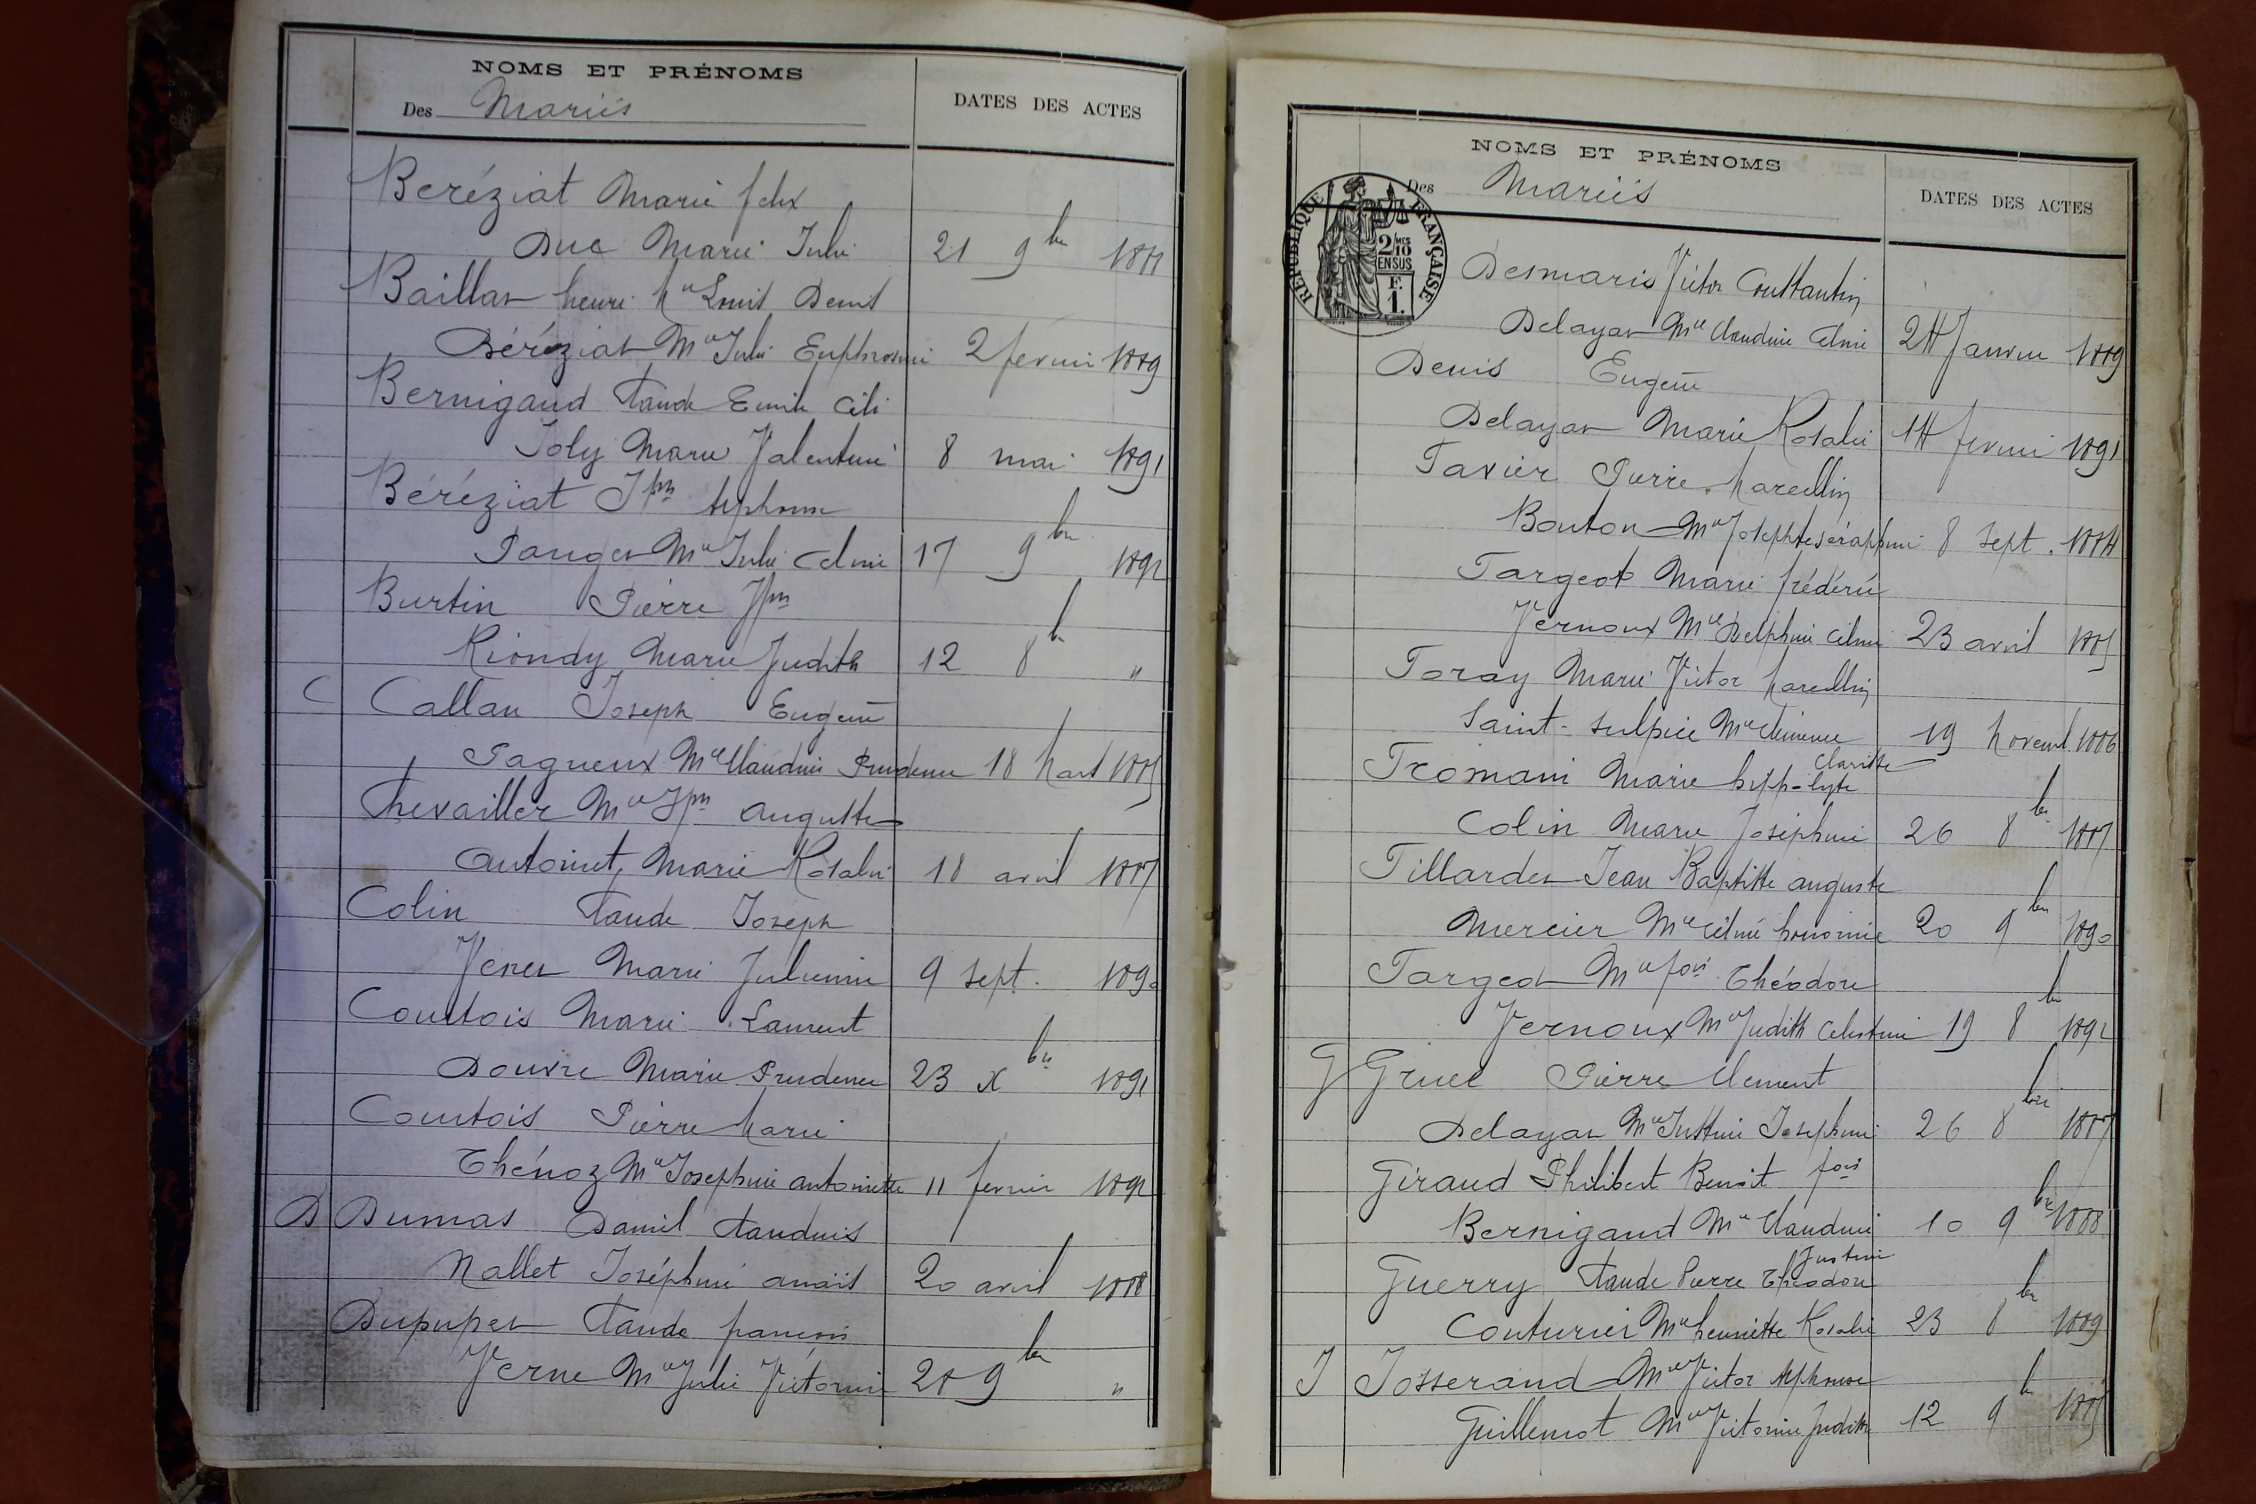 NOMS ET PRÉNOMS
Des Mariés
DATES DES ACTES
Beréziat Marie felix
Duc Marie Julie 21 9bre 1888
Baillat henri Mie Louis Denis
Béréziat Mie Julie Euphrosine 2 février 1889
Bernigaud Claude Emile
Joly Marie Valentine 8 mai 1891
Béréziat Jph
Panget Mie Julie Celine 17 9bre 1892
Burtin Pierre Jph
Riondy Marie Judith 12 8bre "
C Callau Joseph Eugène
Pagneux Mie Claudine Prudence 18 Mars 1885
Chevailler Mie Jph Auguste
Antoinet Marie Rosalie 18 avril 1887
Colin Claude Joseph
Venet Marie Julienne 9 sept. 1890
Courtois Marie Laurent
Douvre Marie Prudence 23 Xbre 1891
Courtois Pierre Marie
Thénoz Mie Josephine antoinette 11 fevrier 1892
D Dumas Daniel Claudius
Nallet Joséphine anaïs 20 avril 1888
Dupupet Claude françois
Verne Mie Julie Victorine 28 9bre "
NOMS ET PRÉNOMS
Des Mariés
DATES DES ACTES
RÉPUBLIQUE FRANÇAISE
2/10 MES
EN SUS
F.
1.
Desmaris Victor Constantin
Delayat Mie Claudine Celine 24 Janvier 1889
Denis Eugène
Delayat Marie Rosalie 14 fevrier 1891
Favier Pierre Marcellin
Bouton Mie Josephte séraphine 8 sept. 1884
Fargeot Marie frédéric
Vernoux Mie Delphine Celine 23 avril 1885
Foray Marie Victor Marcellin
Saint-Sulpice Mie Clémence 19 Novemb. 1886
Clarisse
Fromani Marie hippolyte
Colin Marie Joséphine 26 8bre 1887
Fillardet Jean Baptiste auguste
Mercier Mie Céline honorine 20 9bre 1890
Fargeot Mie fois Théodore
Vernoux Mie Judith Celestine 19 8bre 1892
G Gruel Pierre Clement
Delayat Mie Justine Josephine 26 8bre 1887
Giraud Philibert Benoit fois
Bernigaud Mie Claudine 10 9bre 1888
Justine
Guerry Claude Pierre Théodore
Couturier Mie henriette Rosalie 23 8bre 1889
J Josserand Mie Victor Alphonse
Guillemot Mie Victorine Judith 12 9bre 1885